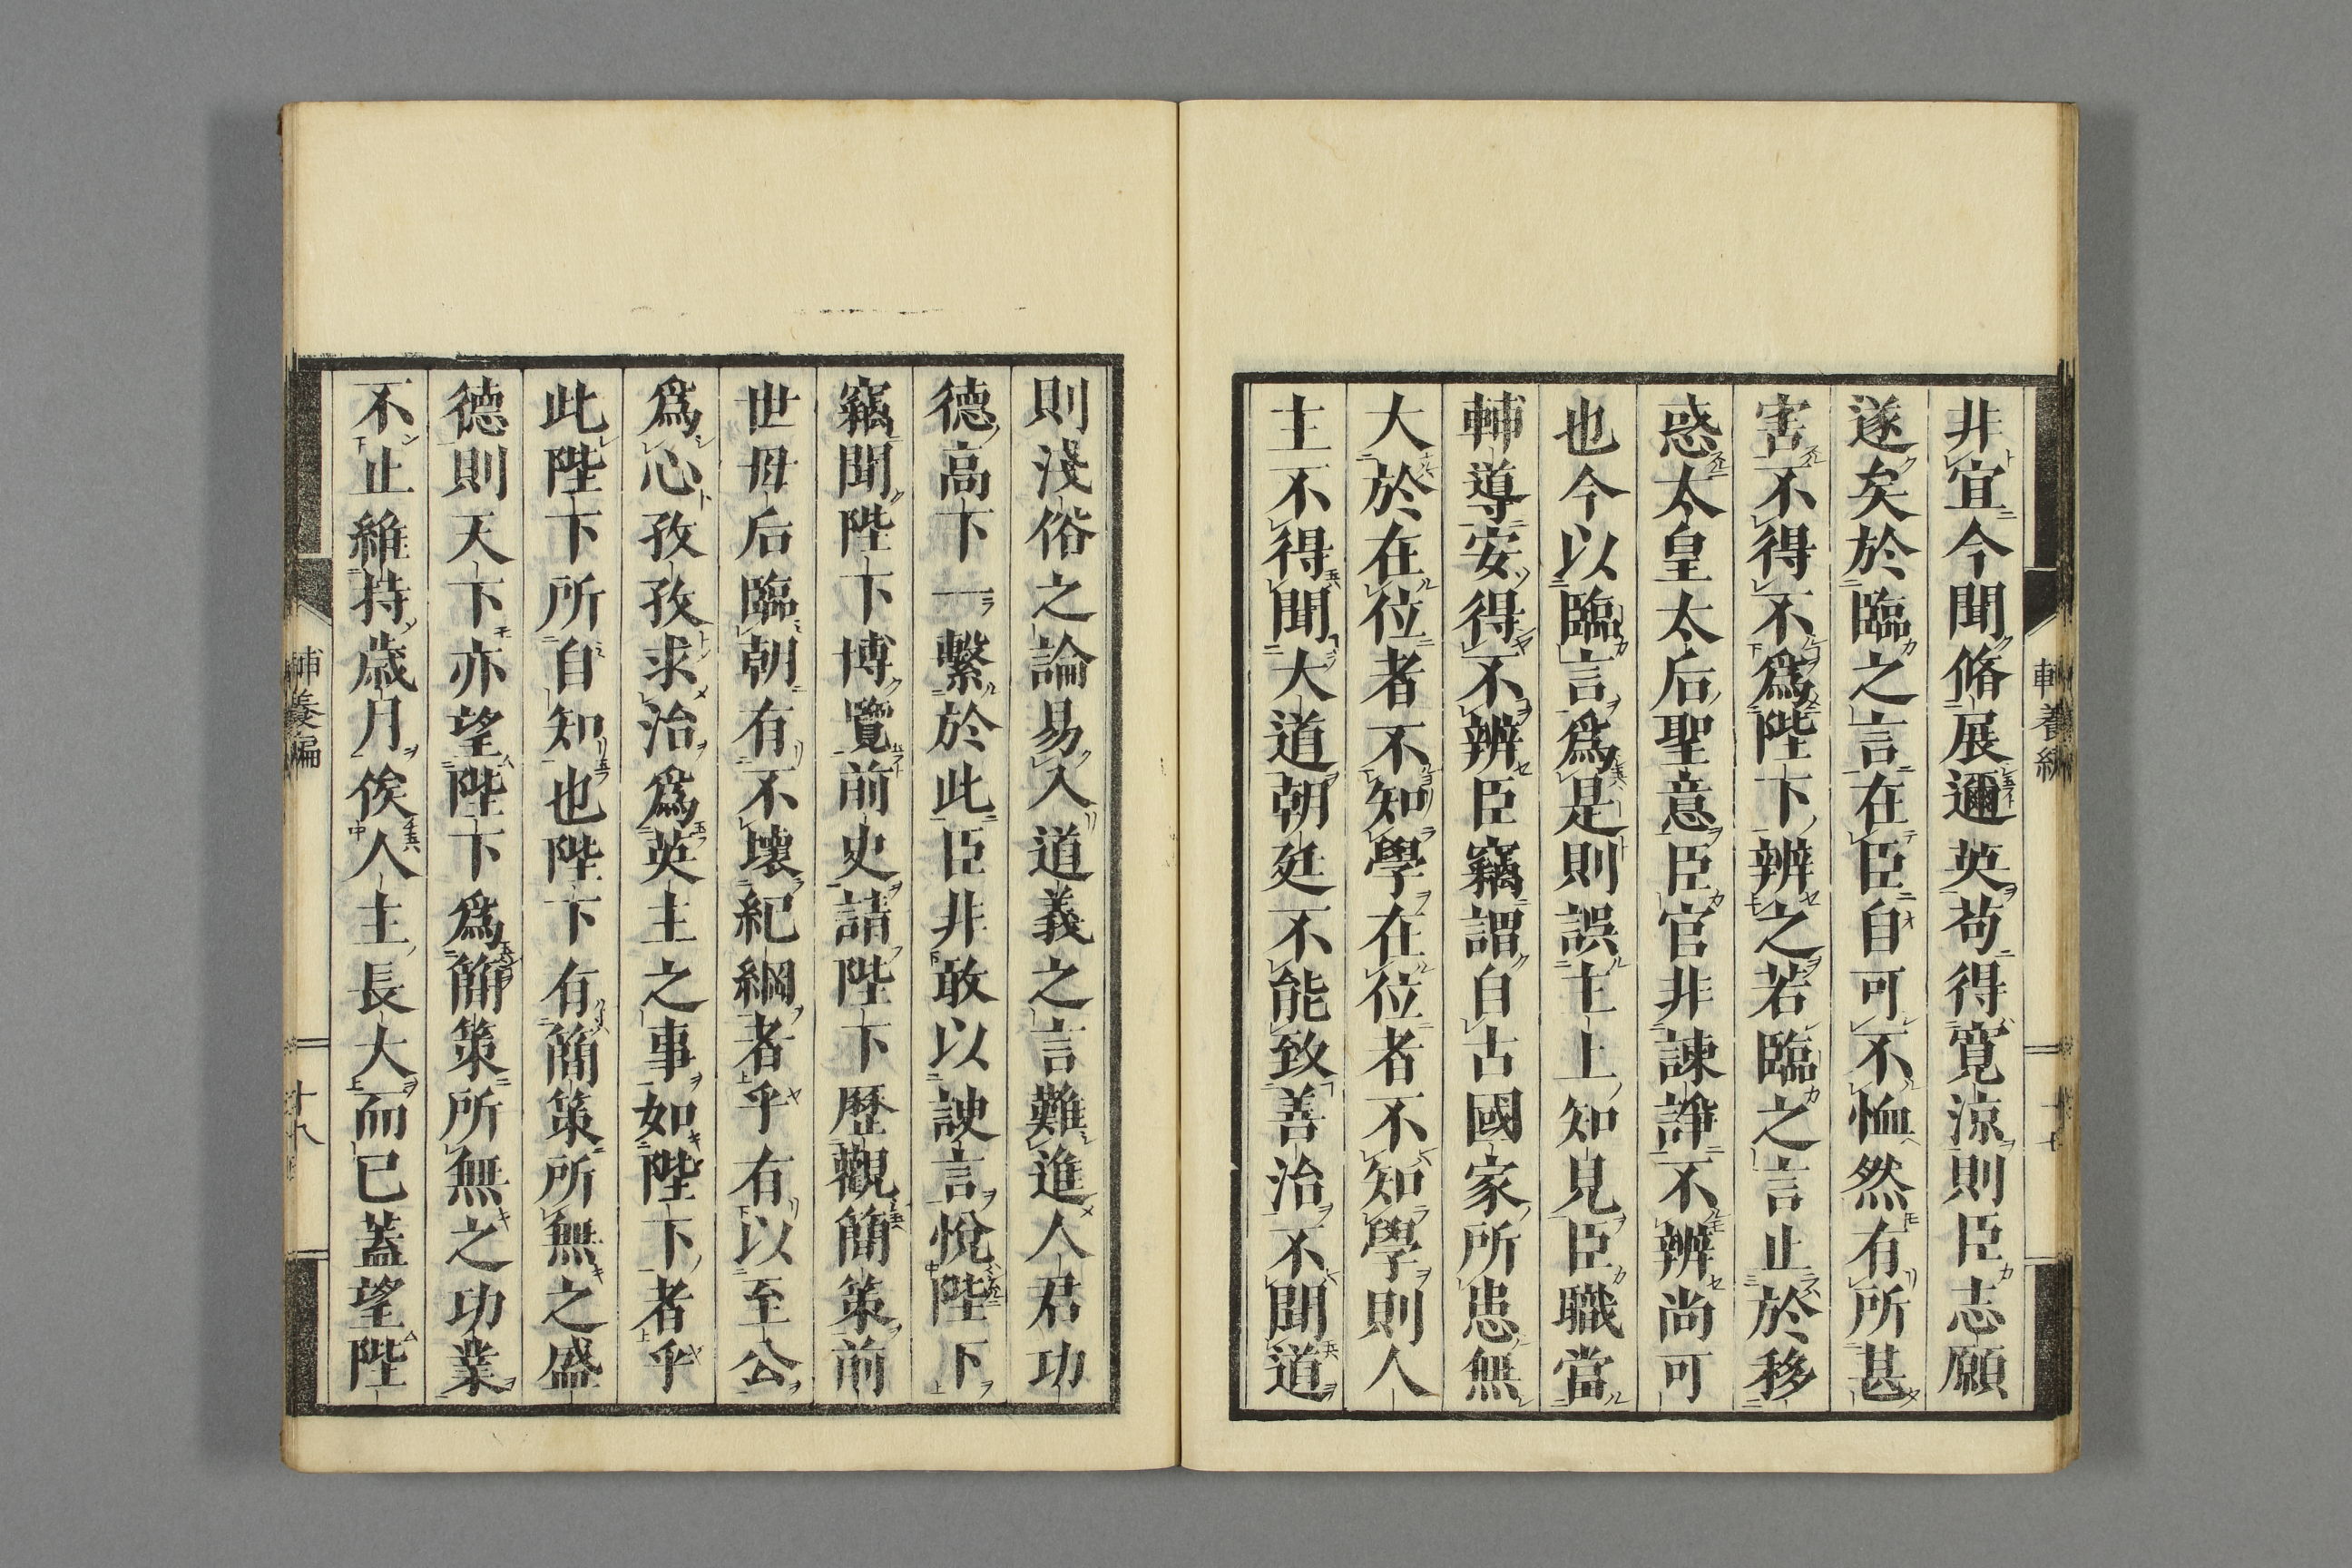 非宜今聞脩展邇英苟得寛涼則臣志願
遂矣於臨之言在臣自可不恤然有所甚
害不得不爲陛下辨之若臨之言止於移
惑太皇太后聖意臣官非諫諍不辨尚可
也今以臨言爲是則誤主上知見臣職當
輔導安得不辨臣竊謂自古國家所患無
大於在位者不知學在位者不知學則人
主不得聞大道朝廷不能致善治不聞道
則淺俗之論易入道義之言難進人君功
德高下一繫於此臣非敢以諛言悅陛下
竊聞陛下博覽前史請陛下歴觀簡策前
世母后臨朝有不壞紀綱者乎有以至公
爲心孜孜求治爲英主之事如陛下者乎
此陛下所自知也陛下有簡策所無之盛
德則天下亦望陛下爲簡策所無之功業
不止維持歲月俟人主長大而已蓋望陛
輔養編
十八